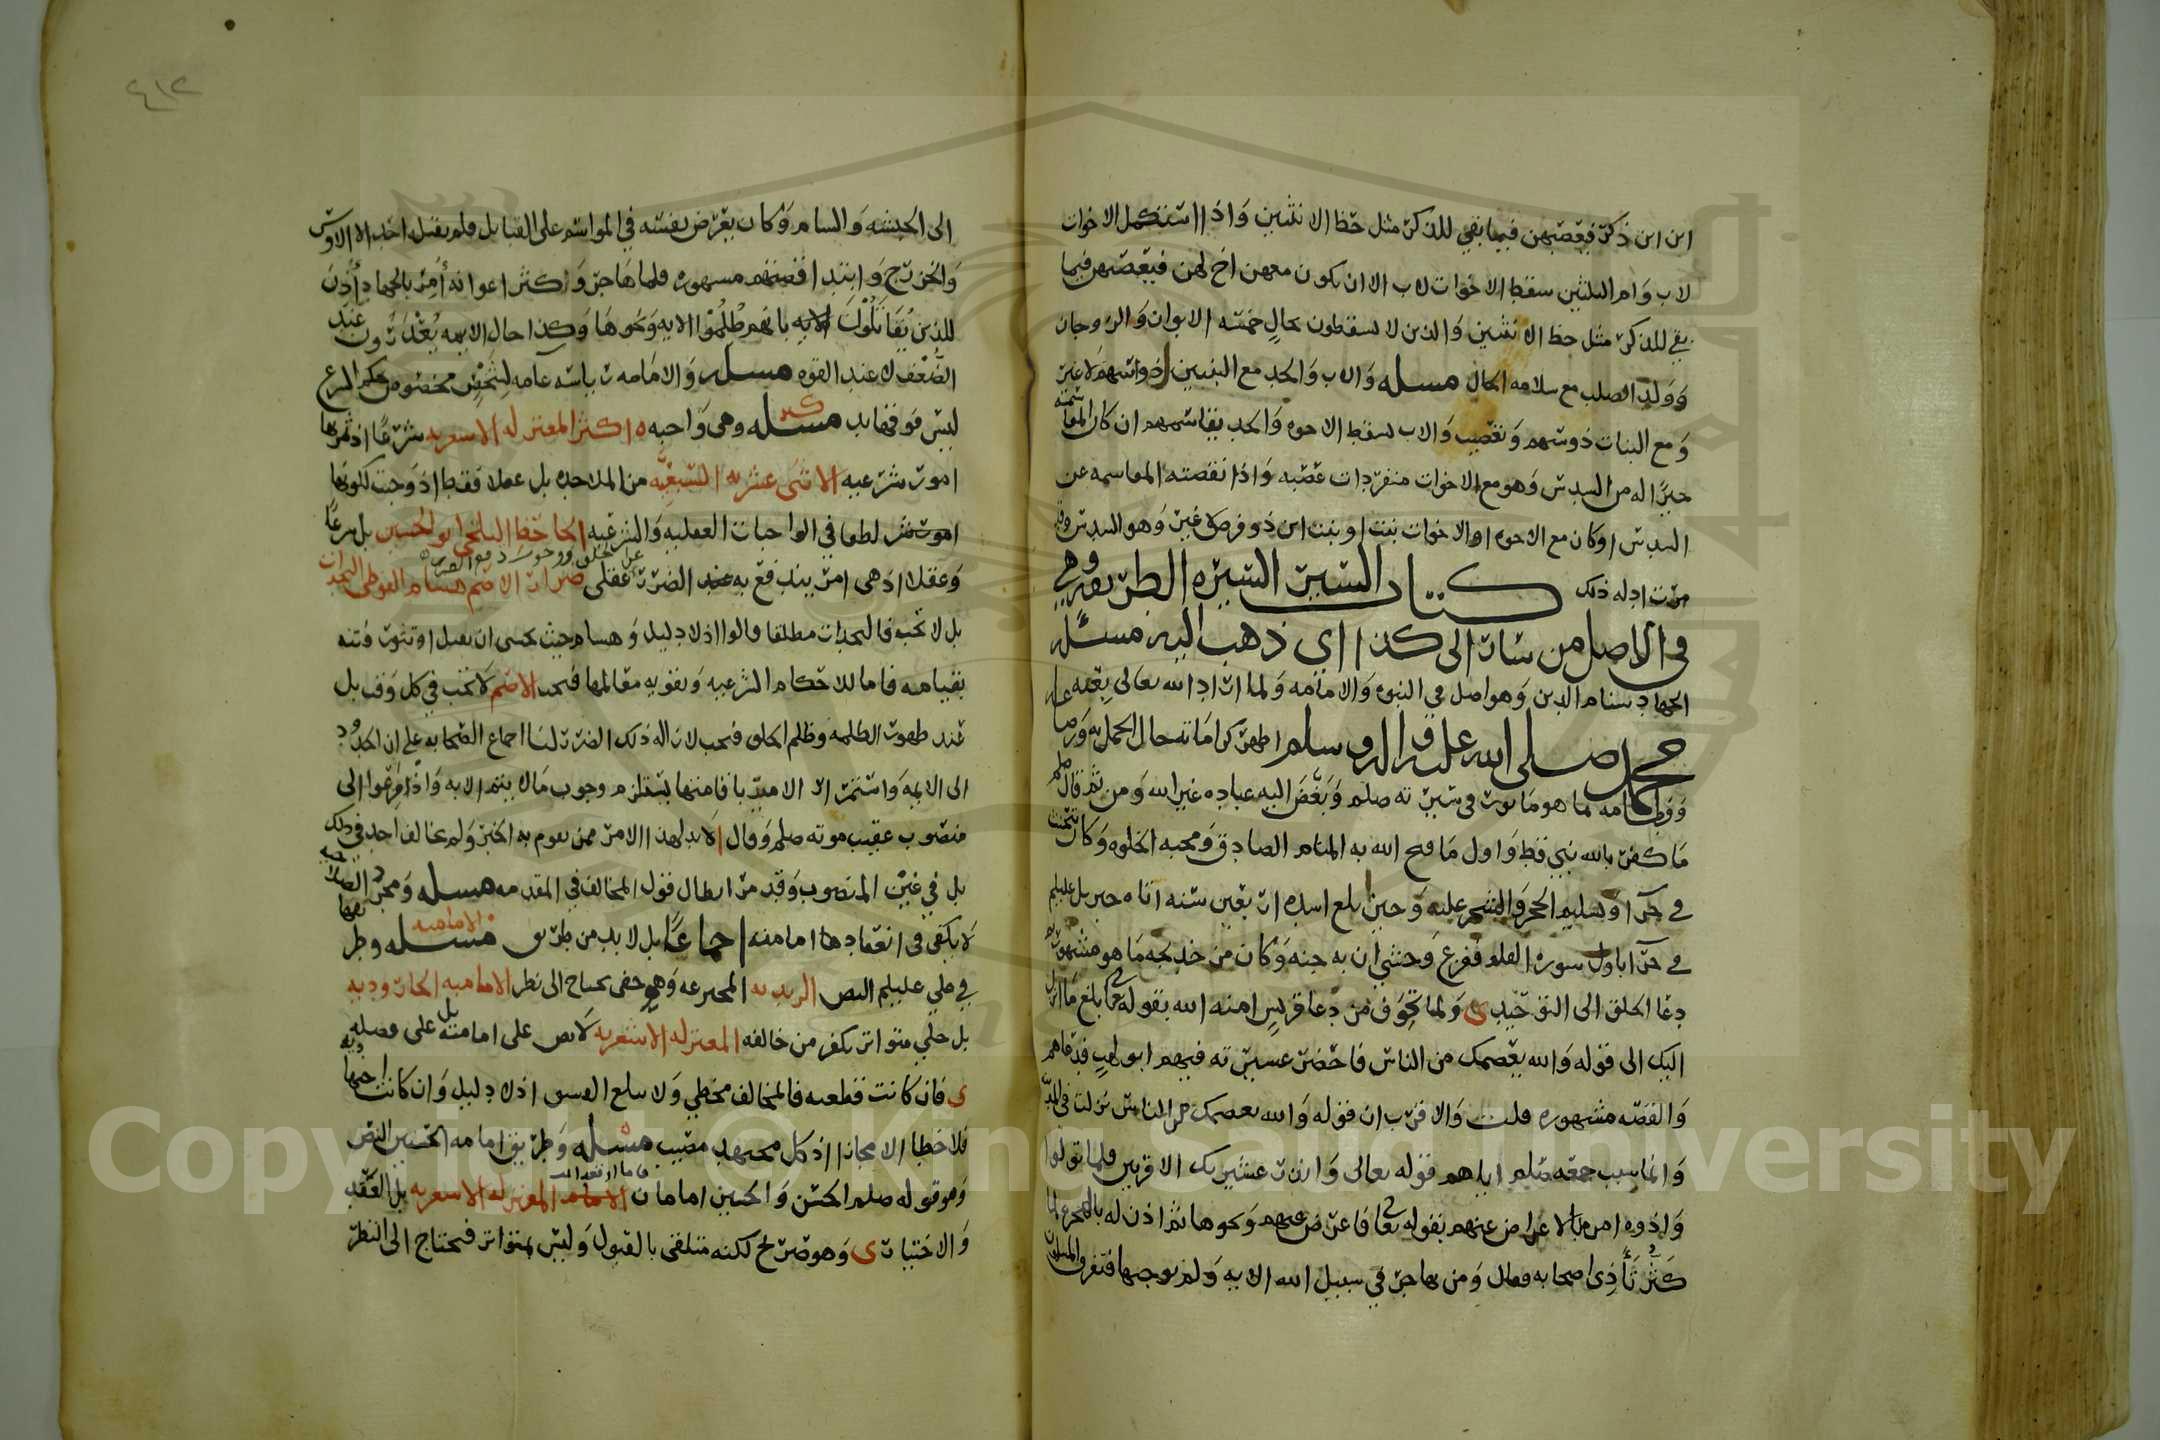 ابن ابن ذكر فيعصبهن فيما بقي للذكر مثل حظ الانثيين واذا استكمل الاخوات
لاب وام الثلثين سقط الاخوات لاب الا ان يكون معهن اخ لهن فيعصبهن فيما
بقي للذكر مثل حظ الانثيين والذين لا يسقطون بحال خمسه الابوان والزوجان
وولد الصلب مع سلامه الحال مسله والاب والجد مع البنين ذواسهم لا غير
ومع البنات ذوسهم وتعصيب والاب يسقط الاخوه والجد يقاسمهم ان كان المقاسمه
خيرا له من السدس وهو مع الاخوات منفردات عصبه واذا نقصته المقاسمه عن
السدس او كان مع الاخوه او الاخوات بنت او بنت ابن ذو فرض غير وهو السدس وقد
مرت ادله ذلك كتاب السير السيره الطريقه وهي
في الاصل من سار الى كذا اي ذهب اليه مسئله
الجهاد سنام الدين وهو اصل في النبوه والامامه ولما اراد الله تعالى بعثه
محمد صلى الله عليه واله وسلم اظهر كراماته حال الحمل به ورضاعه
لما هو ماثور في سيرته صلم وبغض اليه عباده غير الله ومن ثم قال صلم
ما كفر بالله نبي قط واول ما فتح الله به المنام الصادق ومحبه الخلوه وكان يتحنث
في حرا وتسليم الحجر والشجر عليه وحين بلغ اشده اربعين سنه اتاه جبريل عليلم
في حرا باول سوره القلم ففزع وخشي ان به جنه وكان من خديجه ما هو مشهور
دعا الخلق الى التوحيد ى ولما تخوف من دعا قريش امنه الله بقوله تعا بلغ ما انزل
اليك الى قوله والله يعصمك من الناس فاحضر عشيرته فيهم ابو لهب فدعاهم
والقصه مشهوره قلت والاقرب ان قوله والله يعصمك من الناس نزلت في المدينه
وانما سبب جمعه صلم اياهم قوله تعالى وانذر عشيرتك الاقربين فلما تولوا
واذوه امر بالاعراض عنهم بقوله تعا فاعرض عنهم ونحوها ثم اذن له بالهجره لما
كثر تأذي اصحابه فقال ومن يهاجر في سبيل الله الايه ولم يوجبها فتفرق المسلمون
٤١٢
الى الحبشه والشام وكان يعرض نفسه في المواسم على القبايل فلم يقبل احد الا الاوس
والخزرج وابتدا قصتهم مشهوره فلما هاجر وكثر اعوانه أمر بالجهاد أذن
للذين يقاتلون الايه بانهم ظلموا الايه ونحوها وكذا حال الايمه يعذرون عند
الضعف لا عند القوه مسله والامامه رياسه عامه لشخص مخصوص بحكم الشرع
ليس فوقها يد مسئله وهي واجبه ه اكثر المعتزله الاشعريه شرعا اذ ثمرتها
امور شرعيه الاثني عشريه السبعيه من الملاحده بل عقلا فقط اذ وجبت لكونها
لطفا في الواجبات العقليه والشرعيه الجاحظ البلخي ابو الحسين بل شرعا
وعقلا اذ هي امر يندفع به عند الضرر عقلي ضرار الاصم هشام الفوطي النجدات
بل لا تجب فالنجدات مطلقا قالوا اذ لا دليل وهشام حيث يخشى ان يقتل او تثور فتنه
بقيامه فاما للاحكام الشرعيه وتقويه معالمها فتجب الاصم لا تجب في كل وقت بل
عند ظهور الظلمه وظلم الخلق فتجب لازاله ذلك الضرر لنا اجماع الصحابه على ان الحدود
الى الايمه واستمرار الامر باقامتها يستلزم وجوب ما لا يتم الا به واذا فزعوا الى
منصوب عقيب موته صلم وقال لا بد لهذا الامر ممن يقوم به الخبر ولم يخالف احد في ذلك
بل في غير المنصوب وقد مر ابطال قول المخالف في المقدمه مسله ومجرد الصلاحيه
لا يكفي في انعقادها امامته اجماعا بل لا بد من طريق الاماميه مسله وطر
في علي عليلم النص الزيديه المخترعه وهي خفي يحتاج الى نظر الاماميه الجاروديه
بل جلي متواتر يكفر من خالفه المعتزله الاشعريه لا نص على امامته بل على فضله
ى فان كانت قطعيه فالمخالف مخطي ولا يبلغ الفسق اذ لا دليل وان كانت اجتهاديه
فلا خطا الا مجازا اذ كل مجتهد مصيب مسئله وطريق امامه الحسنين النص
وهو قوله صلم الحسن والحسين امامان المعتزله الاشعريه بل العقد
والاختيار ى وهو صريح لكنه متلقى بالقبول وليس بمتواتر فيحتاج الى النظر
Copyright © King Saud University